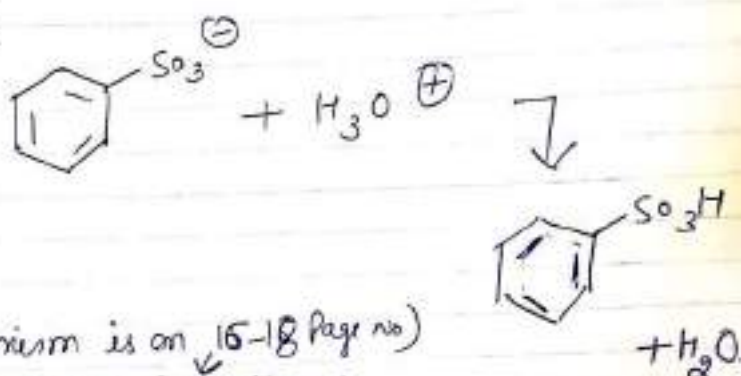 SO3⊖
+ H3O ⊕
SO3H
is on 16-18 Page no)
+H2O